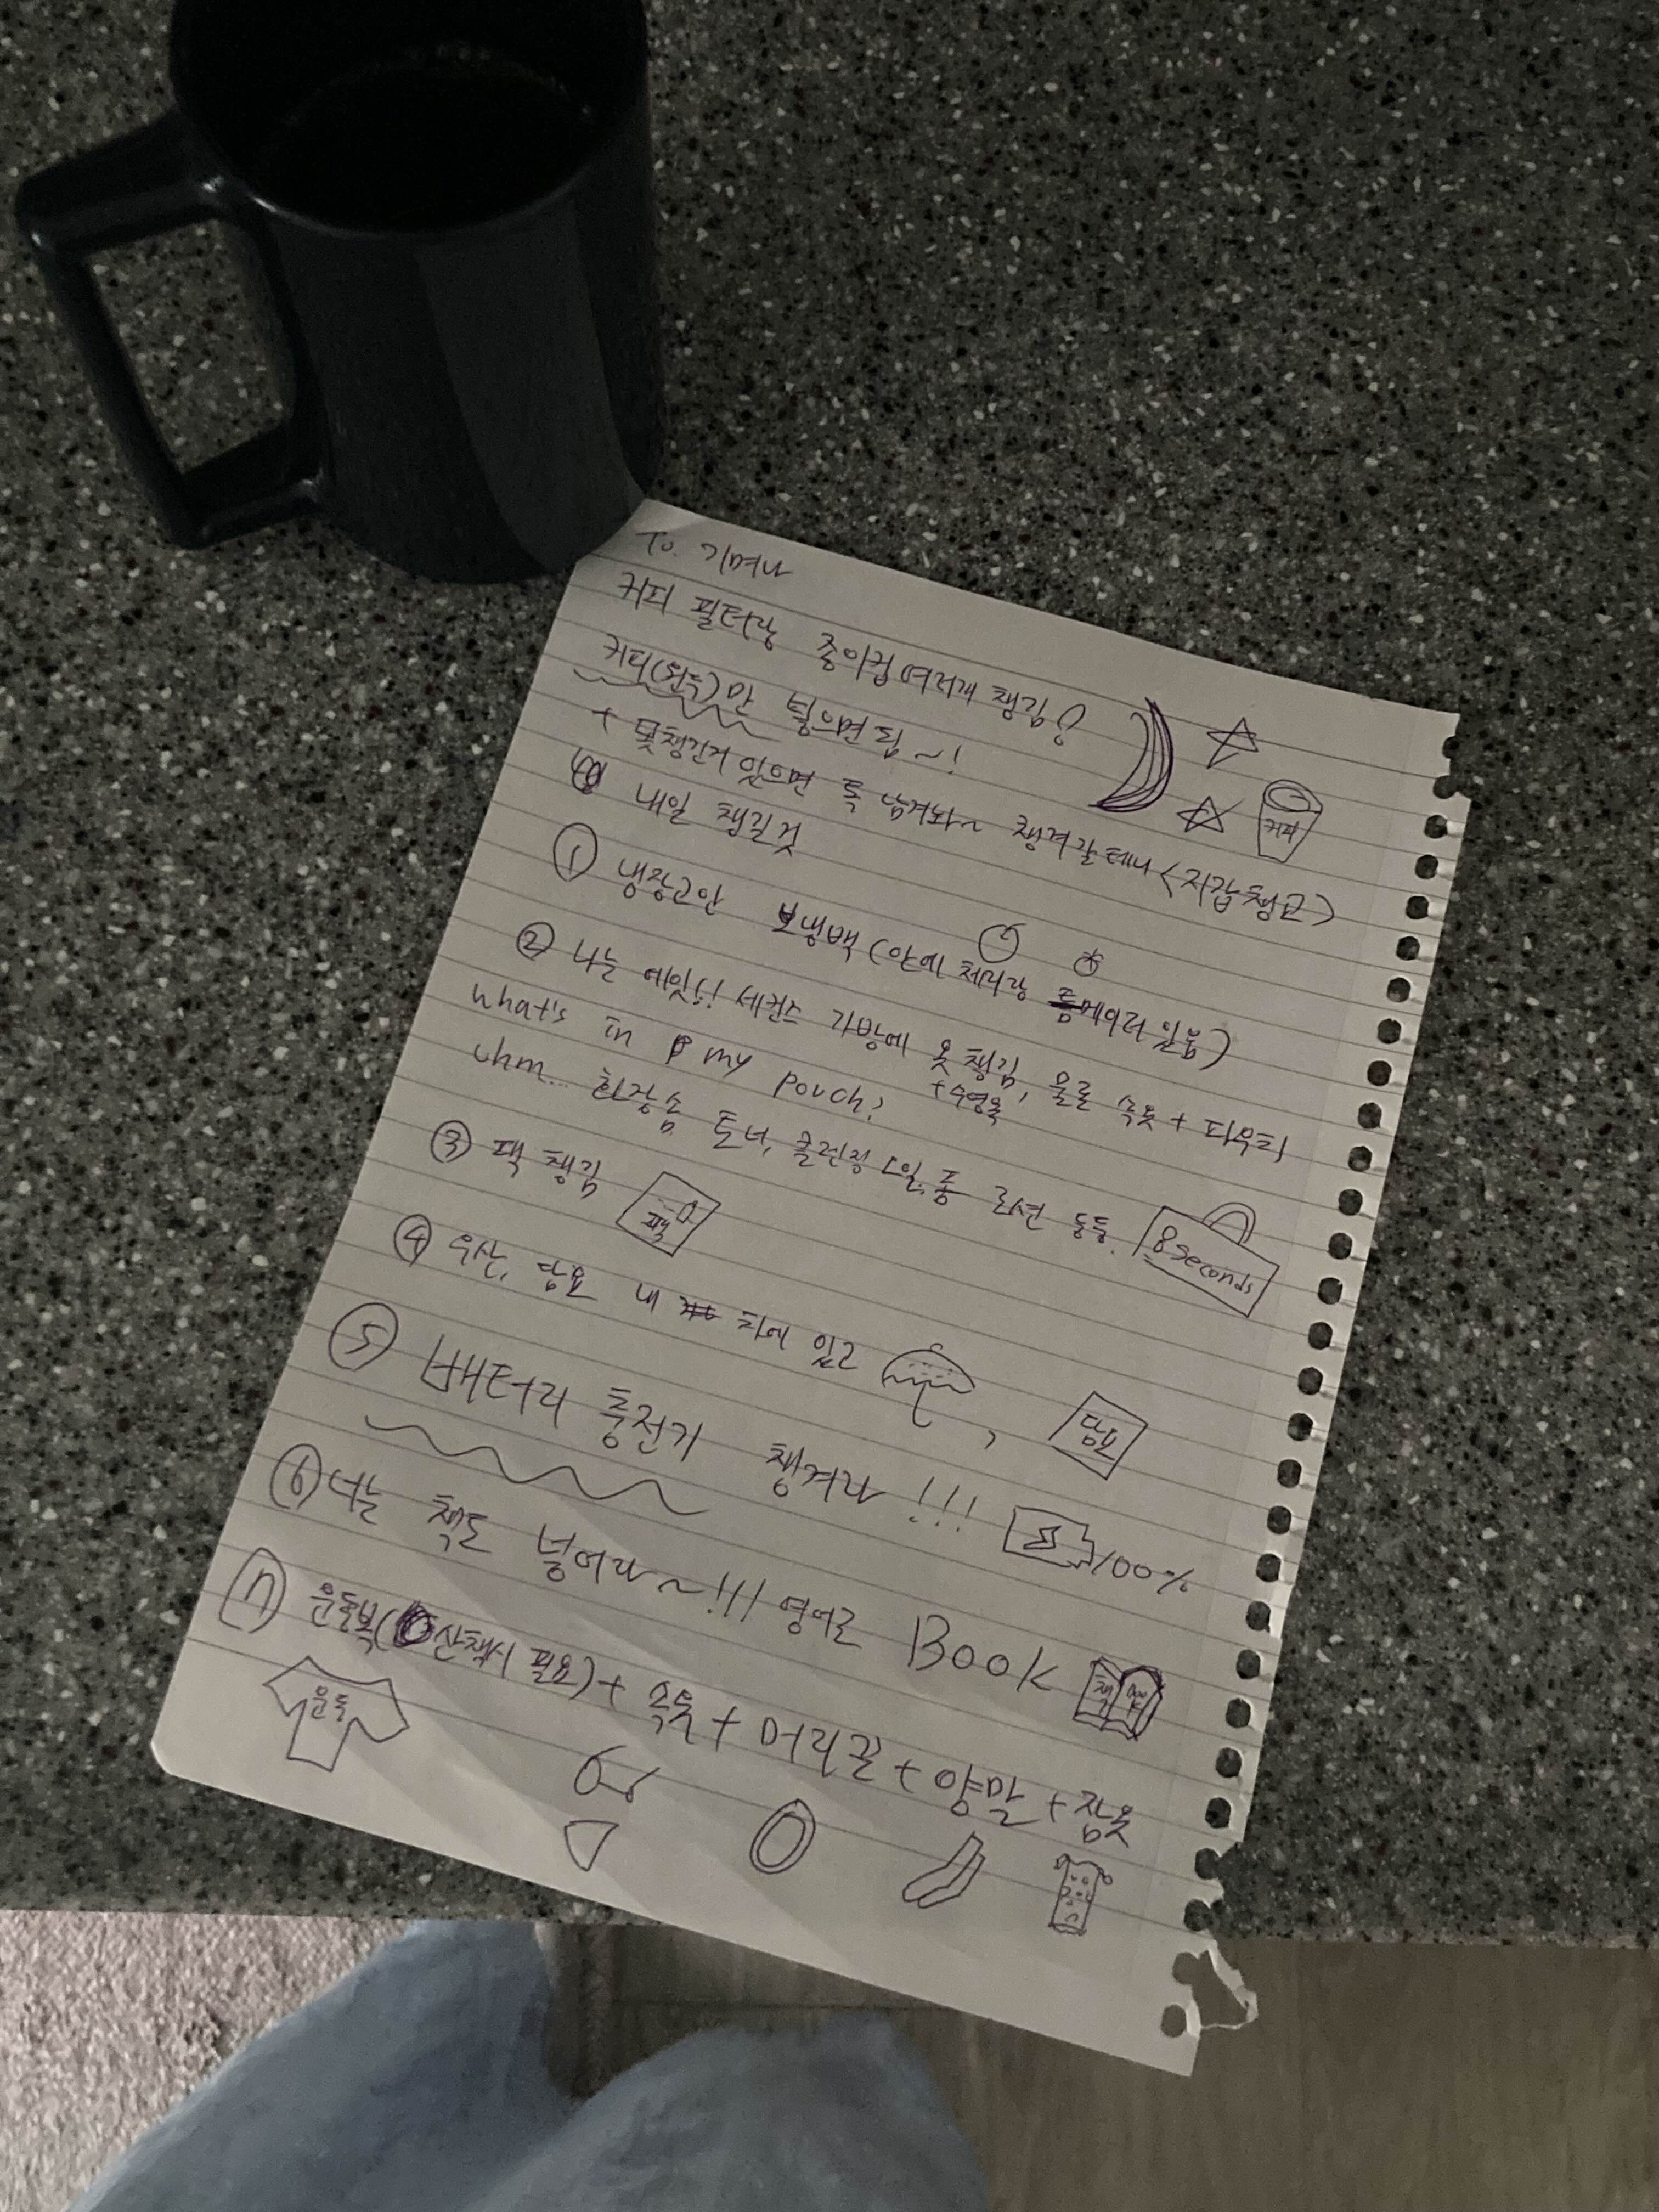 To. 기며나
커피 필터랑 종이컵 여러개 챙김
커피(원두)만 넣으면 됨~!
+ 못챙긴거 있으면 톡 남겨놔~ 챙겨갈테니 <지갑챙겨>
커피
내일 챙길것
① 냉장고안 보냉백 (안에 체리랑 토메이러 있음)
② 나는 에잇!! 세컨즈 가방에 옷 챙김, 물론 속옷 + 파우치
+수영옷
what's in my pouch?
uhm... 화장솜 토너, 클렌징 오일, 폼 로션 등등.
8seconds
③ 팩 챙김
팩
④ 우산, 담요 내 차에 있고
담요
⑤ 배터리 충전기 챙겨라!!!
100%
⑥ 너는 책도 넣어라~!!! 영어로 Book
책 Book
⑦ 운동복(산책시 필요) + 속옷 + 머리끈 + 양말 + 잠옷
운동